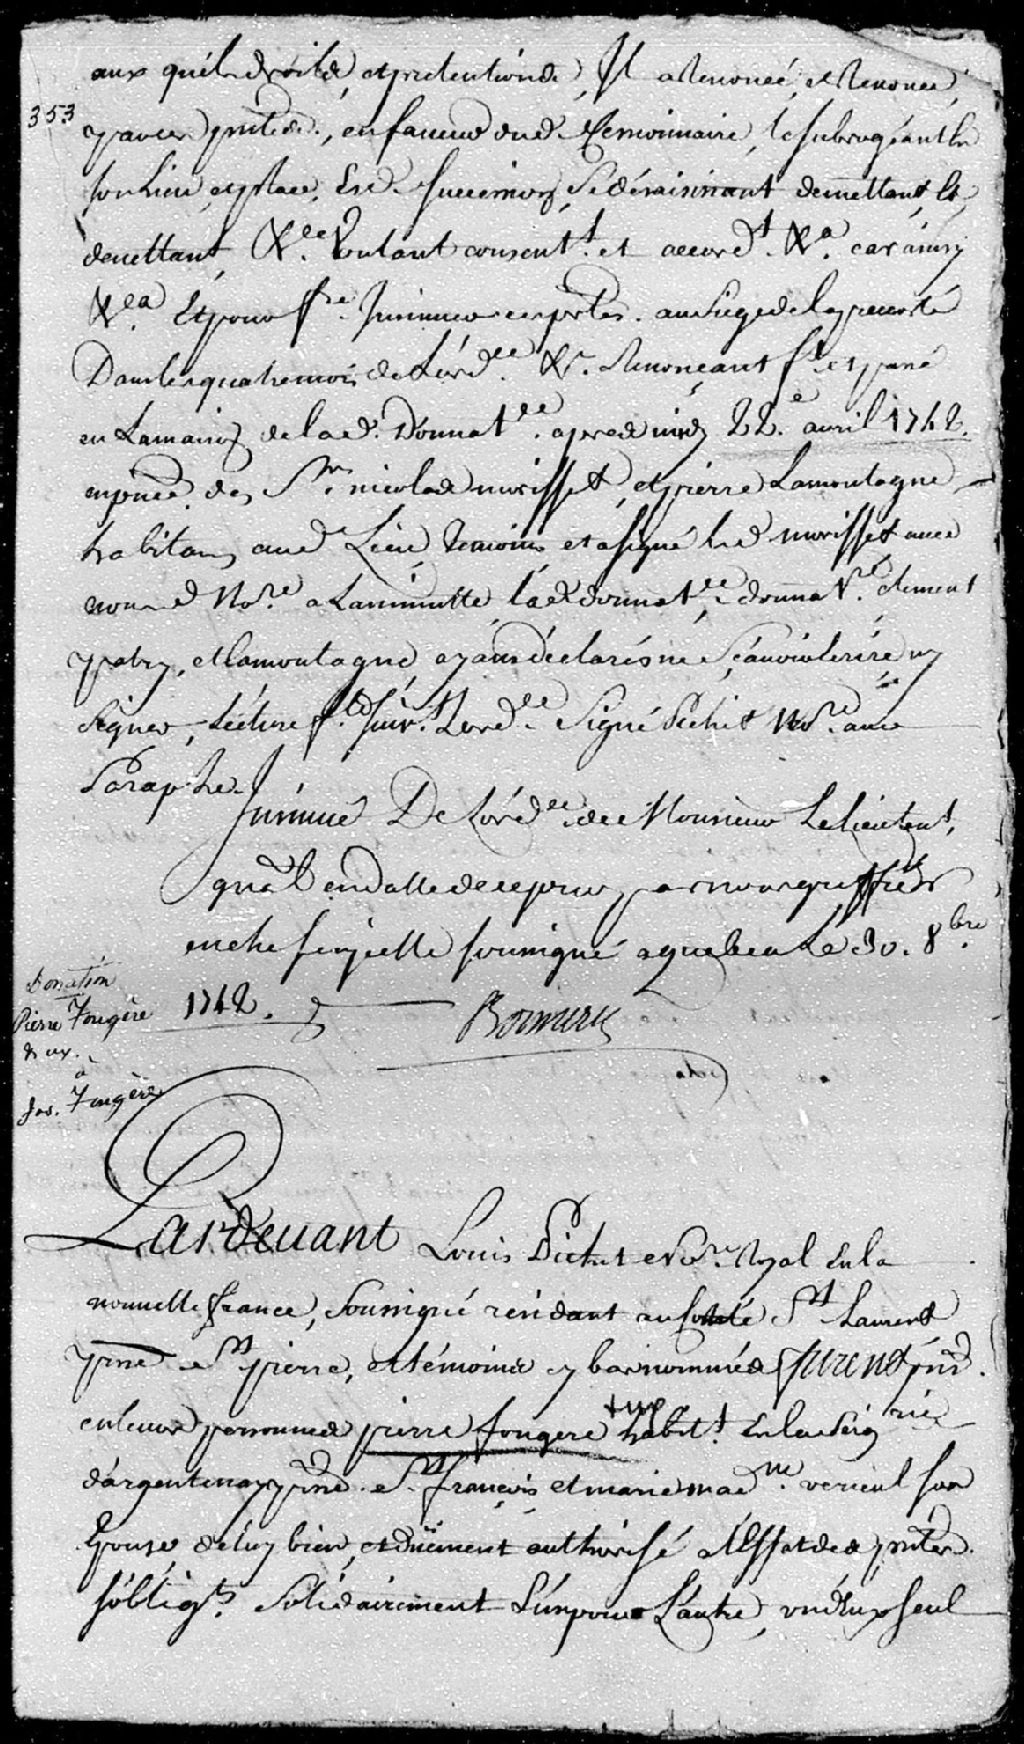 aux quels droits, et pretentions, Il a Renoncé, et Renonce
353
par ces pntes, en faveur dud. Cessionnaire, le subrogeant en
son Lieu et place, End. succession, se désaisissant demettant, et
demettant, &ca. Voulant consentt. et accordt. &a. car ainsy
&ca. Et pour fre. Insinuer ces pntes. au siege de la prevosté
Dans les quatre mois de L'ordce. &a. Renonçant ft. et passé
en La maison de lad. Donnatce. apres midy 22e. avril 1742.
en pnce. des Srs. nicolas morisset, et pierre Lamontagne
habitans aud. Lieu, temoins et a signé led. morisset avec
nous d. Nore. a La minutte, lad. donnatce. donnatr. clement
patry, et lamontagne, ayans déclarés ne sçavoir écrire ny
signer, Lecture fte. suivt. Lordce. Signé Pichet Nore. avec
Paraphe.
Insinué De L'ordce. de Monsieur Le lieutent.
gnal. en datte de ce jour par nous greffier
en chef en icelle soussigné a quebec Le 30. 8bre.
1742.
Boisseau
Donation
Pierre Fougère
& ux.
à
Jos. Fougère
Pardevant Louis Pichet Nore. Royal En la
nouvelle france, soussigné residant au Comté St. Laurent
psse. St. pierre, et témoins cy bas nommés furent pnts.
en leurs personnes pierre fougere habitt. En la Seignrie
d'argentenay psse. St. françois et marie madne. verieul son
Epouse de luy bien, et düement authorisé a l'Effet des pntes.
s'obligt. Solidairement L'un pour L'autre, un d'eux seul